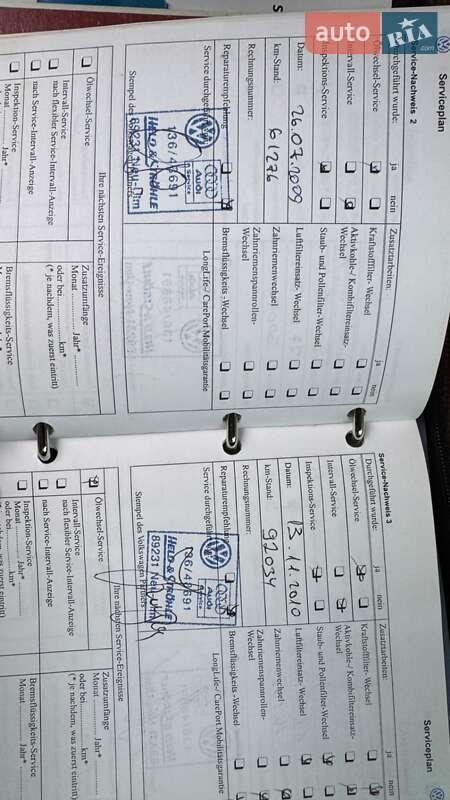 auto
RIA
.com
Serviceplan
Service-Nachweis 2
Durchgeführt wurde:
ja
nein
Ölwechsel-Service
Intervall-Service
Inspektions-Service
Datum:
26.07.2009
km-Stand:
61276
Rechnungsnummer:
Reparaturempfehlung
Service durchgeführt
Stempel des
136/48691
Audi
Service
HELD & STRÖHLE
89231 Neu-Ulm
Zusatzarbeiten:
ja
nein
Kraftstofffilter- Wechsel
Aktivkohle-/ Kombifiltereinsatz-
Wechsel
Staub- und Pollenfilter-Wechsel
Luftfiltereinsatz- Wechsel
Zahnriemenwechsel
Zahnriemenspannrollen-
Wechsel
Bremsflüssigkeits -Wechsel
LongLife-/ CarePort Mobilitätsgarantie
Ihre nächsten Service-Ereignisse
Ölwechsel-Service
Intervall-Service
nach flexibler Service-Intervall-Anzeige
nach Service-Intervall-Anzeige
Inspektion-Service
Monat
Jahr*
Zusatzumfänge
Monat
Jahr*
oder bei
km*
(* je nachdem, was zuerst eintritt)
Bremsflüssigkeits-Service
Serviceplan
Service-Nachweis 3
Durchgeführt wurde:
ja
nein
Ölwechsel-Service
Intervall-Service
Inspektions-Service
Datum:
13.11.2010
km-Stand:
92034
Rechnungsnummer:
Reparaturempfehlung
Service durchgeführt
136/48691
Audi
Service
HELD & STRÖHLE
89231 Neu-Ulm
Stempel des Volkswagen Partners
Zusatzarbeiten:
ja
nein
Kraftstofffilter- Wechsel
Aktivkohle-/ Kombifiltereinsatz-
Wechsel
Staub- und Pollenfilter-Wechsel
Luftfiltereinsatz- Wechsel
Zahnriemenwechsel
Zahnriemenspannrollen-
Wechsel
Bremsflüssigkeits -Wechsel
LongLife-/ CarePort Mobilitätsgarantie
Ihre nächsten Service-Ereignisse
Ölwechsel-Service
Intervall-Service
nach flexibler Service-Intervall-Anzeige
nach Service-Intervall-Anzeige
Inspektion-Service
Monat
Jahr*
oder bei
km*
(* je nachdem, was zuerst eintritt)
Zusatzumfänge
Monat
Jahr*
oder bei
km*
(* je nachdem, was zuerst eintritt)
Bremsflüssigkeits-Service
Monat
Jahr*